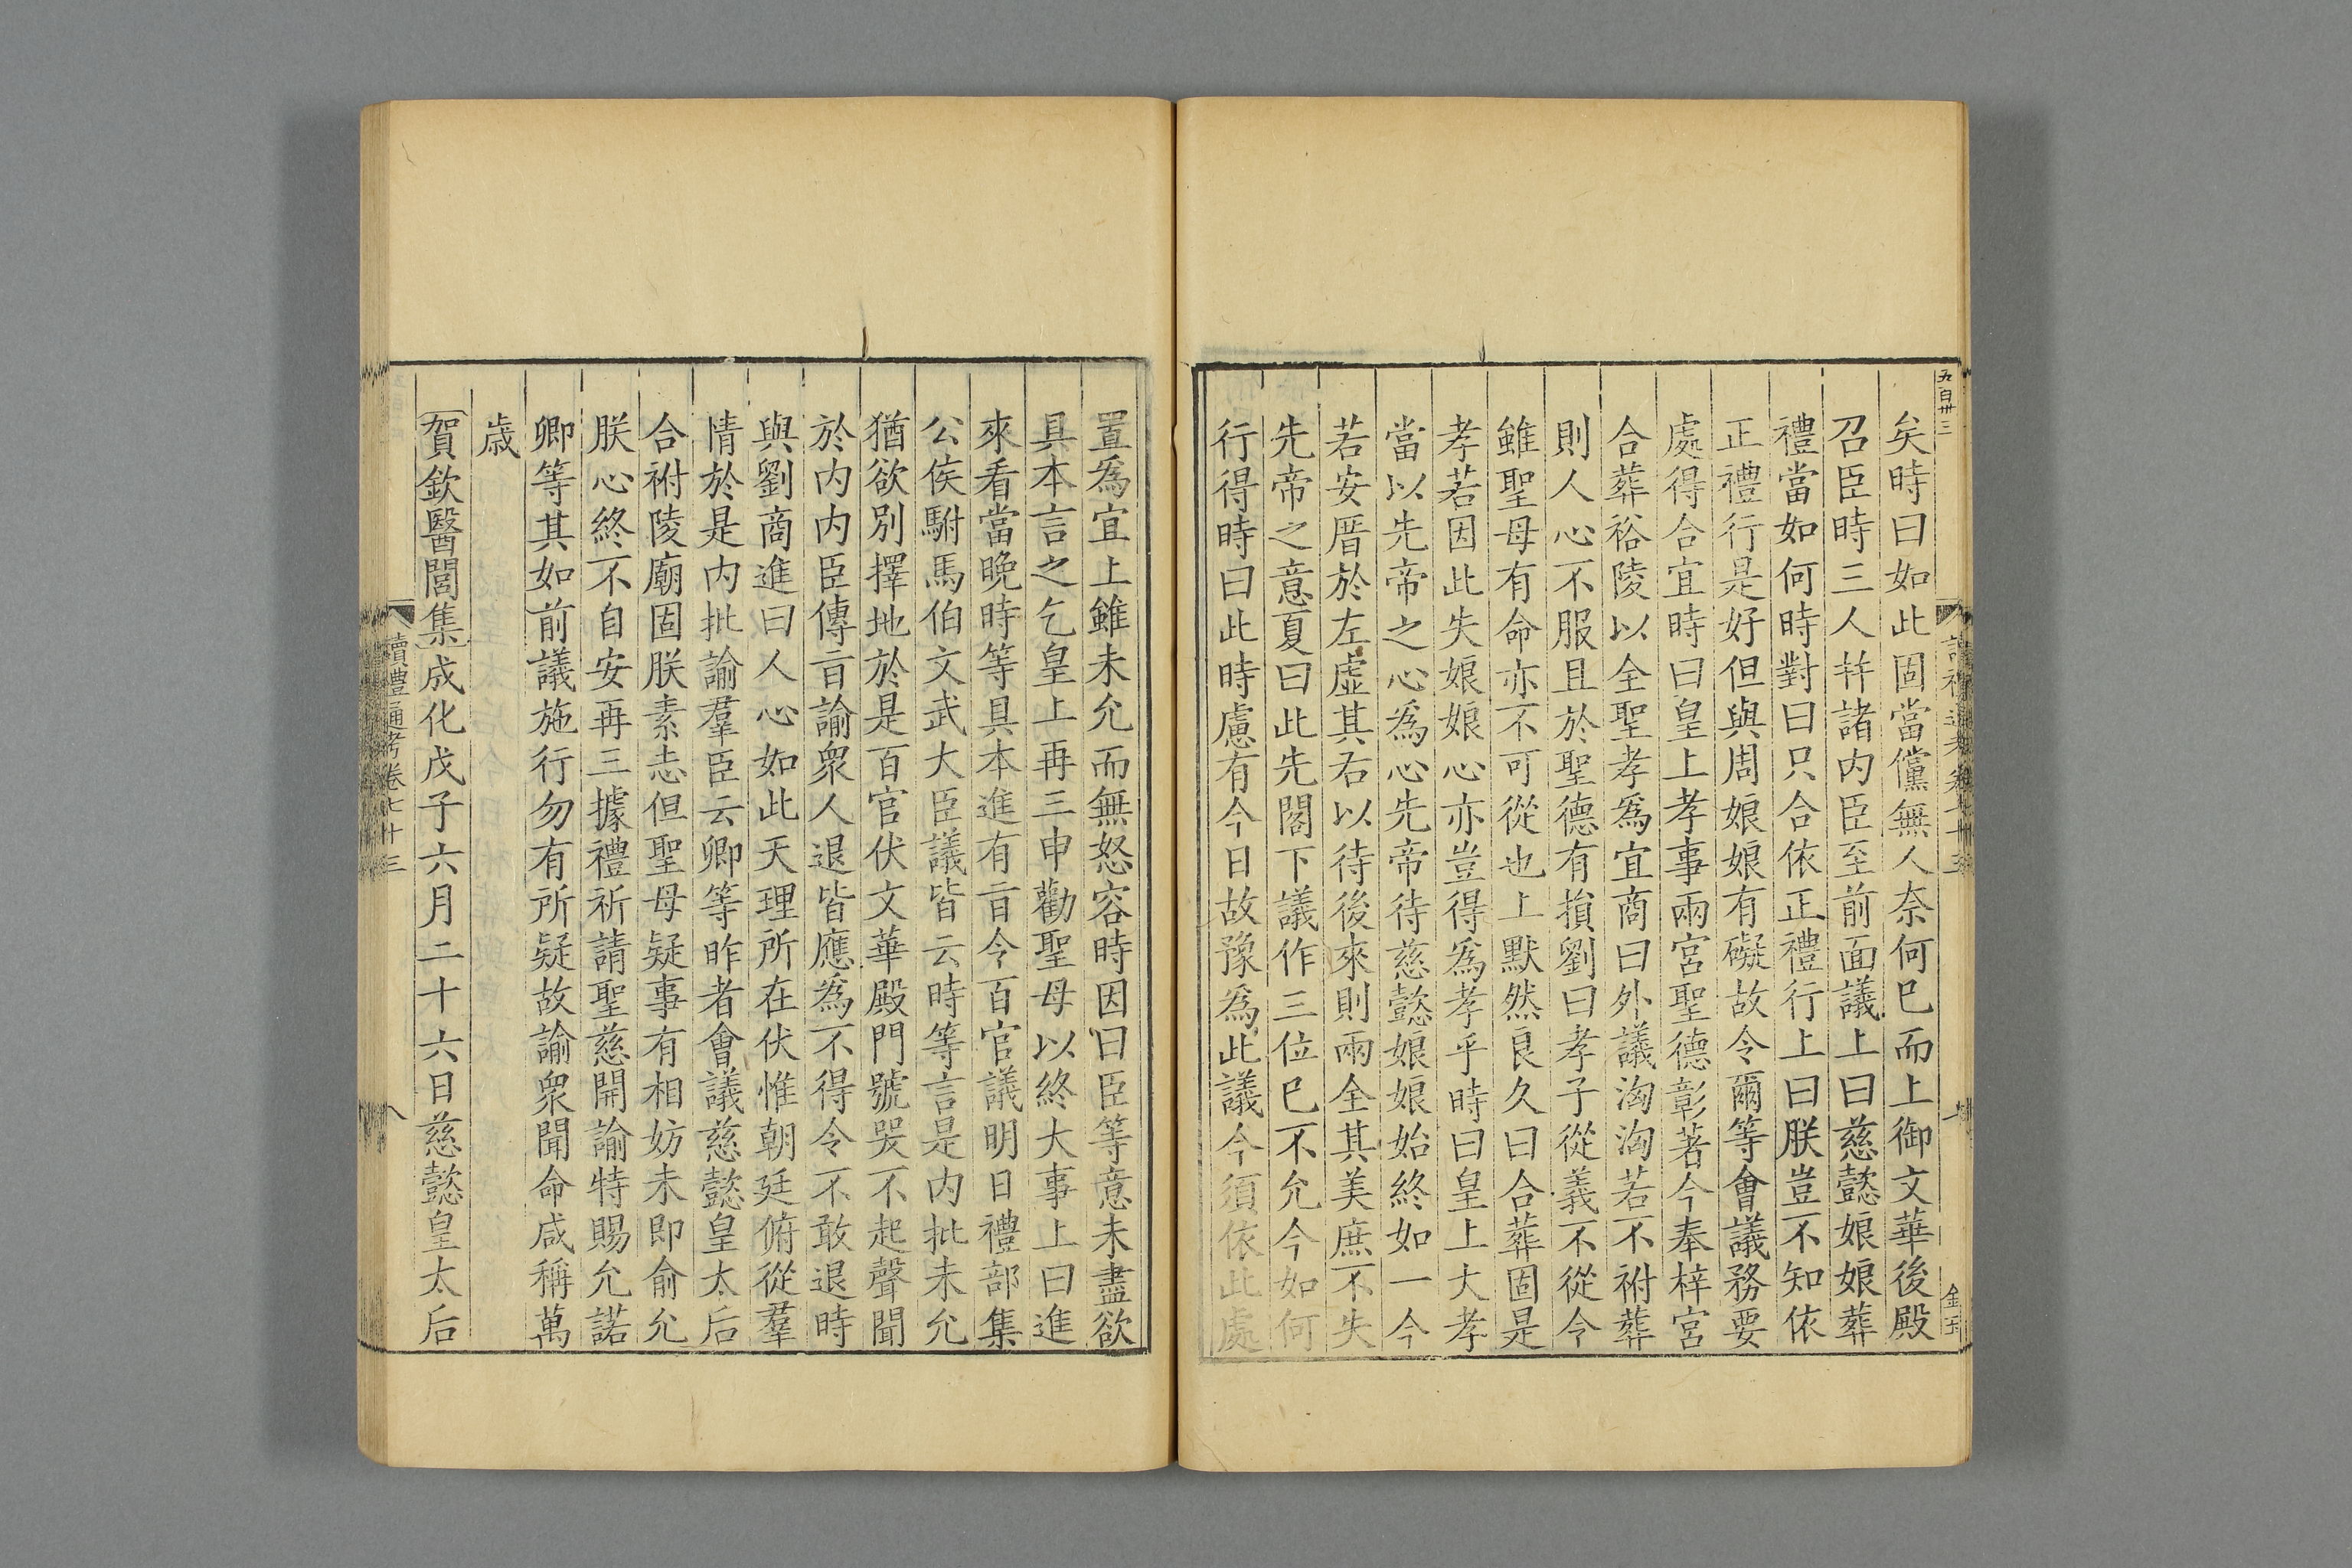 五百卅三
矣時曰如此固當儻無人奈何已而上御文華後殿
召臣時三人幷諸內臣至前面議上曰慈懿娘娘葬
禮當如何時對曰只合依正禮行上曰朕豈不知依
正禮行是好但與周娘娘有礙故令爾等會議務要
處得合宜時曰皇上孝事兩宮聖德彰著今奉梓宮
合葬裕陵以全聖孝爲宜商曰外議洶洶若不祔葬
則人心不服且於聖德有損劉曰孝子從義不從令
雖聖母有命亦不可從也上默然良久曰合葬固是
孝若因此失娘娘心亦豈得爲孝乎時曰皇上大孝
當以先帝之心爲心先帝待慈懿娘娘始終如一今
若安厝於左虛其右以待後來則兩全其美庶不失
先帝之意夏曰此先閣下議作三位已不允今如何
行得時曰此時慮有今日故豫爲此議今須依此處
金玉
置爲宜上雖未允而無怒容時因曰臣等意未盡欲
具本言之乞皇上再三申勸聖母以終大事上曰進
來看當晚時等具本進有旨令百官議明日禮部集
公侯駙馬伯文武大臣議皆云時等言是內批未允
猶欲別擇地於是百官伏文華殿門號哭不起聲聞
於內內臣傳旨諭衆人退皆應爲不得令不敢退時
與劉商進曰人心如此天理所在伏惟朝廷俯從羣
情於是內批諭羣臣云卿等昨者會議慈懿皇太后
合祔陵廟固朕素志但聖母疑事有相妨未卽俞允
朕心終不自安再三據禮祈請聖慈開諭特賜允諾
卿等其如前議施行勿有所疑故諭衆聞命咸稱萬
歲
賀欽醫閭集成化戊子六月二十六日慈懿皇太后
讀禮通考卷七十三
八